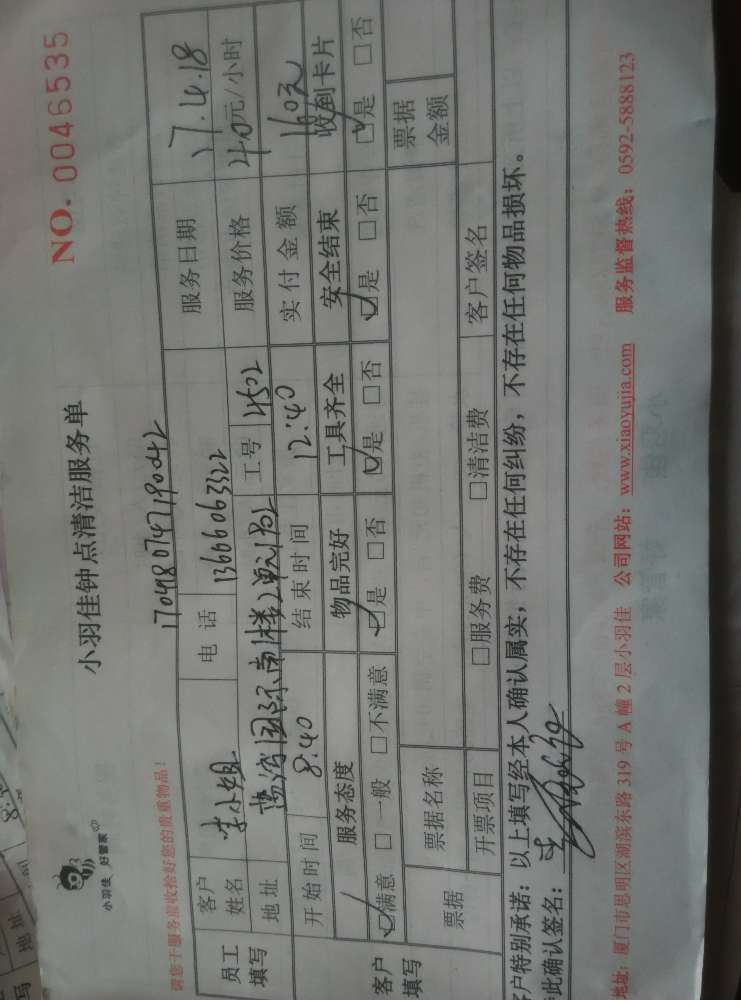 小羽佳 好管家
小羽佳钟点清洁服务单
NO. 0046535
请您于服务前收拾好您的贵重物品!
员工填写
客户姓名
李小姐
电 话
13666063322
服务日期
17.4.18
地 址
1702
工 号
4502
服务价格
40元/小时
开始时间
8:40
结束时间
12:40
实付金额
160元
客户填写
服务态度
物品完好
工具齐全
安全结束
收到卡片
☑满意 □一般 □不满意
☑是 □否
☑是 □否
☑是 □否
☑是 □否
票据
票据名称
票据金额
开票项目
□服务费 □清洁费
客户签名
客户特别承诺:以上填写经本人确认属实,不存在任何纠纷,不存在任何物品损坏。
此确认签名:
地址:厦门市思明区湖滨东路 319 号 A 幢 2 层小羽佳 公司网站:www.xiaoyujia.com 服务监督热线:0592-5888123